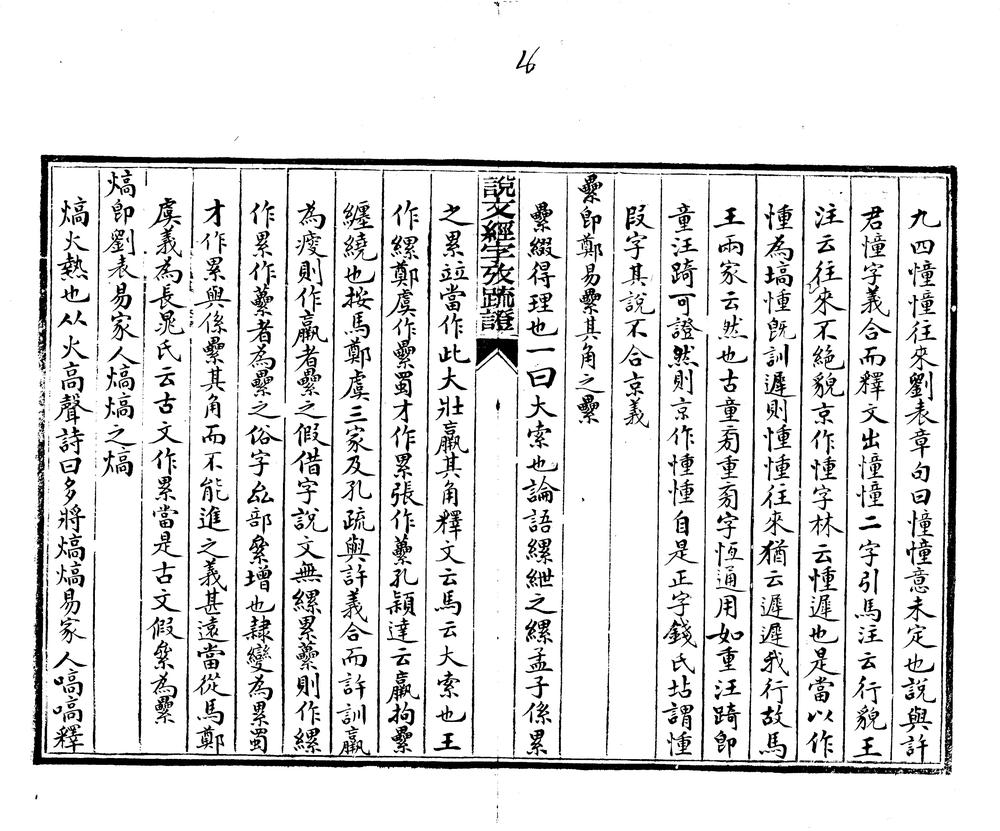 26
九四憧憧往來劉表章句曰憧憧意未定也說與許
君憧字義合而釋文出憧憧二字引馬注云行貌王
注云往來不絕貌京作憧字林云憧遲也是當以作
憧為塙憧既訓遲則憧憧往來猶云遲遲我行故馬
王兩家云然也古童旁重旁字恆通用如重汪踦即
童汪踦可證然則京作憧憧自是正字錢氏坫謂憧
叚字其說不合京義
纍即鄭易纍其角之纍
纍綴得理也一曰大索也論語縲紲之縲孟子係累
說文經字攷疏證
之累竝當作此大壯羸其角釋文云馬云大索也王
作縲鄭虞作纍蜀才作累張作虆孔穎達云羸拘纍
纏繞也按馬鄭虞三家及孔疏與許義合而許訓羸
為瘦則作羸者纍之假借字說文無縲累虆則作縲
作累作虆者為纍之俗字厽部絫增也隸變為累蜀
才作累與係纍其角而不能進之義甚遠當從馬鄭
虞義為長晁氏云古文作累當是古文假絫為纍
熇即劉表易家人熇熇之熇
熇火熱也从火高聲詩曰多將熇熇易家人嗃嗃釋